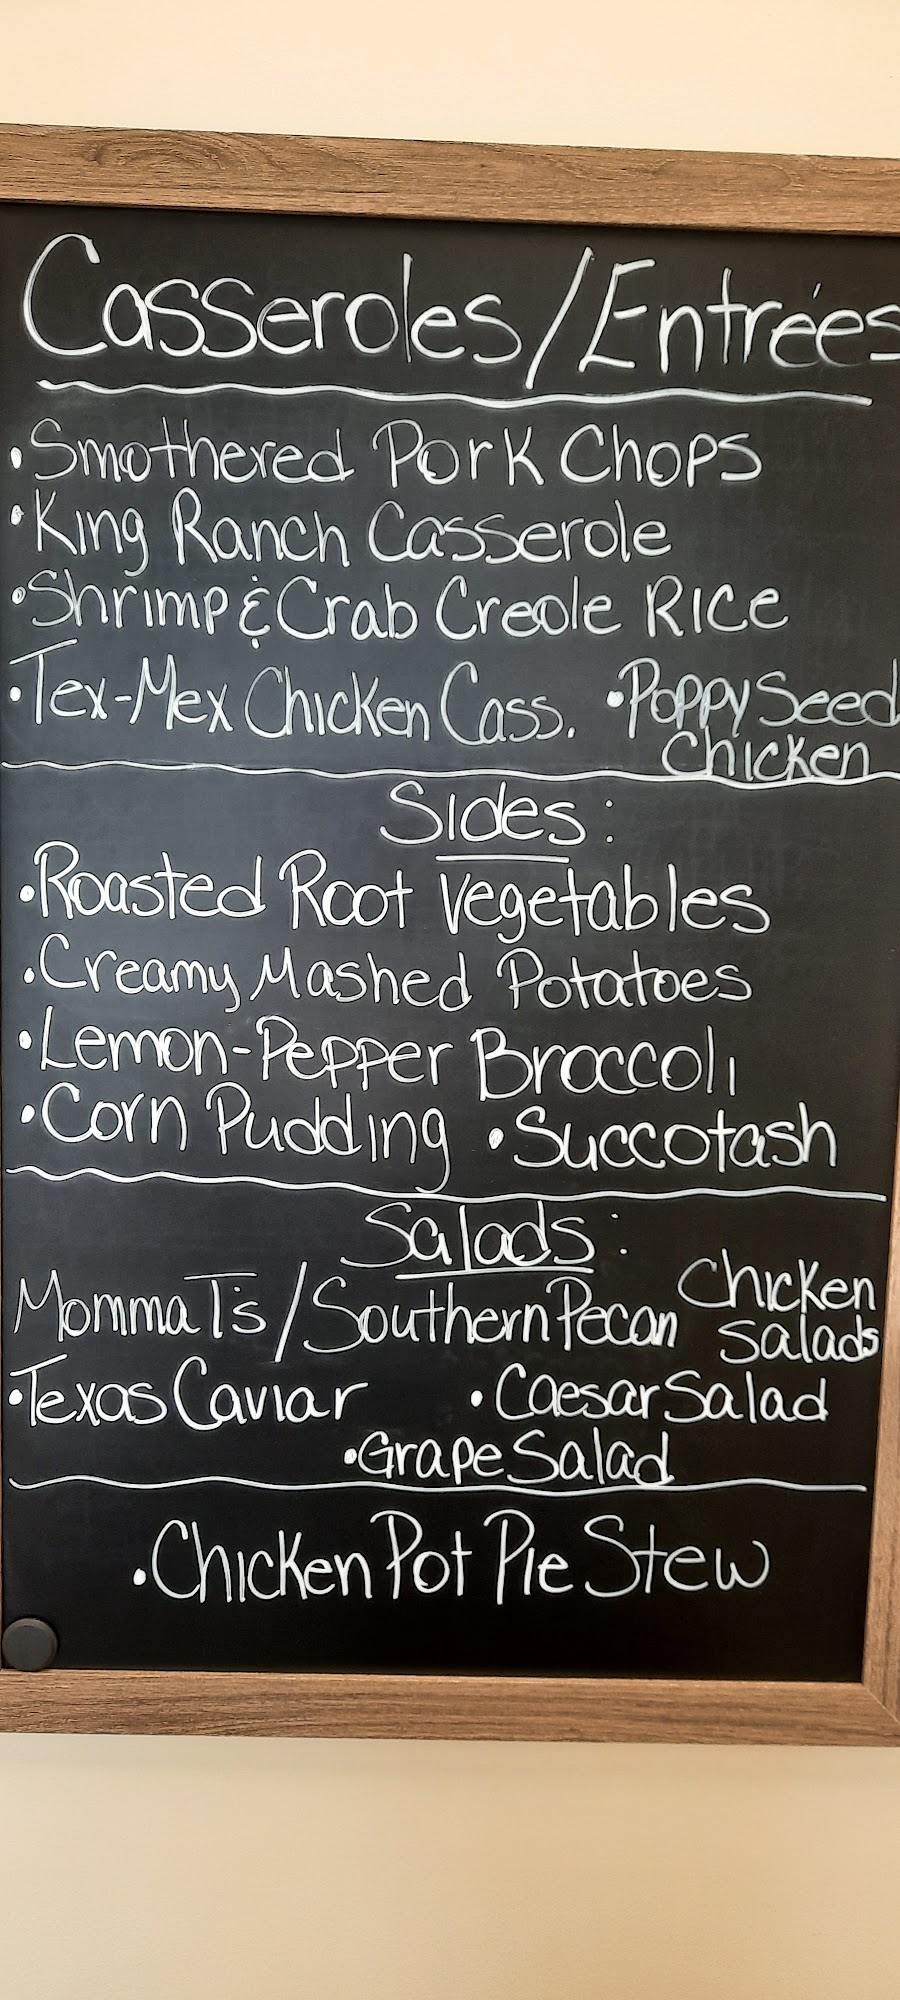 Casseroles/Entrées
•Smothered Pork Chops
•King Ranch Casserole
•Shrimp & Crab Creole Rice
•Tex-Mex Chicken Cass. •Poppy Seed
Chicken
Sides:
•Roasted Root Vegetables
•Creamy Mashed Potatoes
•Lemon-Pepper Broccoli
•Corn Pudding •Succotash
Salads:
Momma T's/Southern Pecan Chicken
Salads
•Texas Caviar •Caesar Salad
•Grape Salad
•Chicken Pot Pie Stew